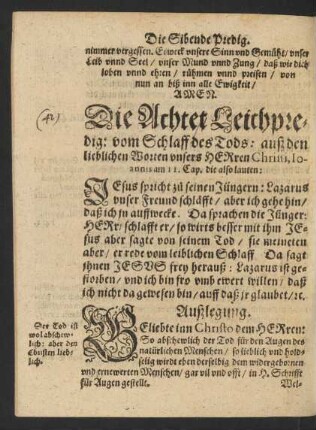 Die Sibende Predig.
nimmer vergessen. Erweck vnsere Sinn vnd Gemüht/ vnser
Leib vnnd Seel/ vnser Mund vnnd Zung/ daß wir dich
loben vnnd ehren/ rühmen vnnd preisen/ von
nun an biß inn alle Ewigkeit/
AMEN.
(42)
Die Achtet Leichpre-
dig: vom Schlaff des Tods: auß den
lieblichen Worten vnsers HERren Christi, Io-
annis am 11. Cap. die also lauten:
JEsus spricht zů seinen Jüngern: Lazarus
vnser Freund schläfft/ aber ich gehe hin/
daß ich jn auffwecke. Da sprachen die Jünger:
HERr/ schlafft er/ so wirts besser mit jhm JE-
sus aber sagte von seinem Tod/ sie meineten
aber/ er rede vom leiblichen Schlaff Da sagt
jhnen JESVS frey herauß: Lazarus ist ge-
storben/ vnd ich bin fro vmb ewert willen/ daß
ich nicht da gewesen bin/ auff daß jr glaubet/ ꝛc.
Außlegung.
Der Tod ist
wol abschew-
lich: aber den
Christen lieb-
lich.
GEliebte inn Christo dem HERren:
So abschewlich der Tod für den Augen des
natürlichen Menschen/ so lieblich vnd hold-
selig wirdt eben derselbig dem widergebornen
vnd ernewerten Menschen/ gar vil vnd offt/ in H. Schrifft
für Augen gestellt.
Wel-